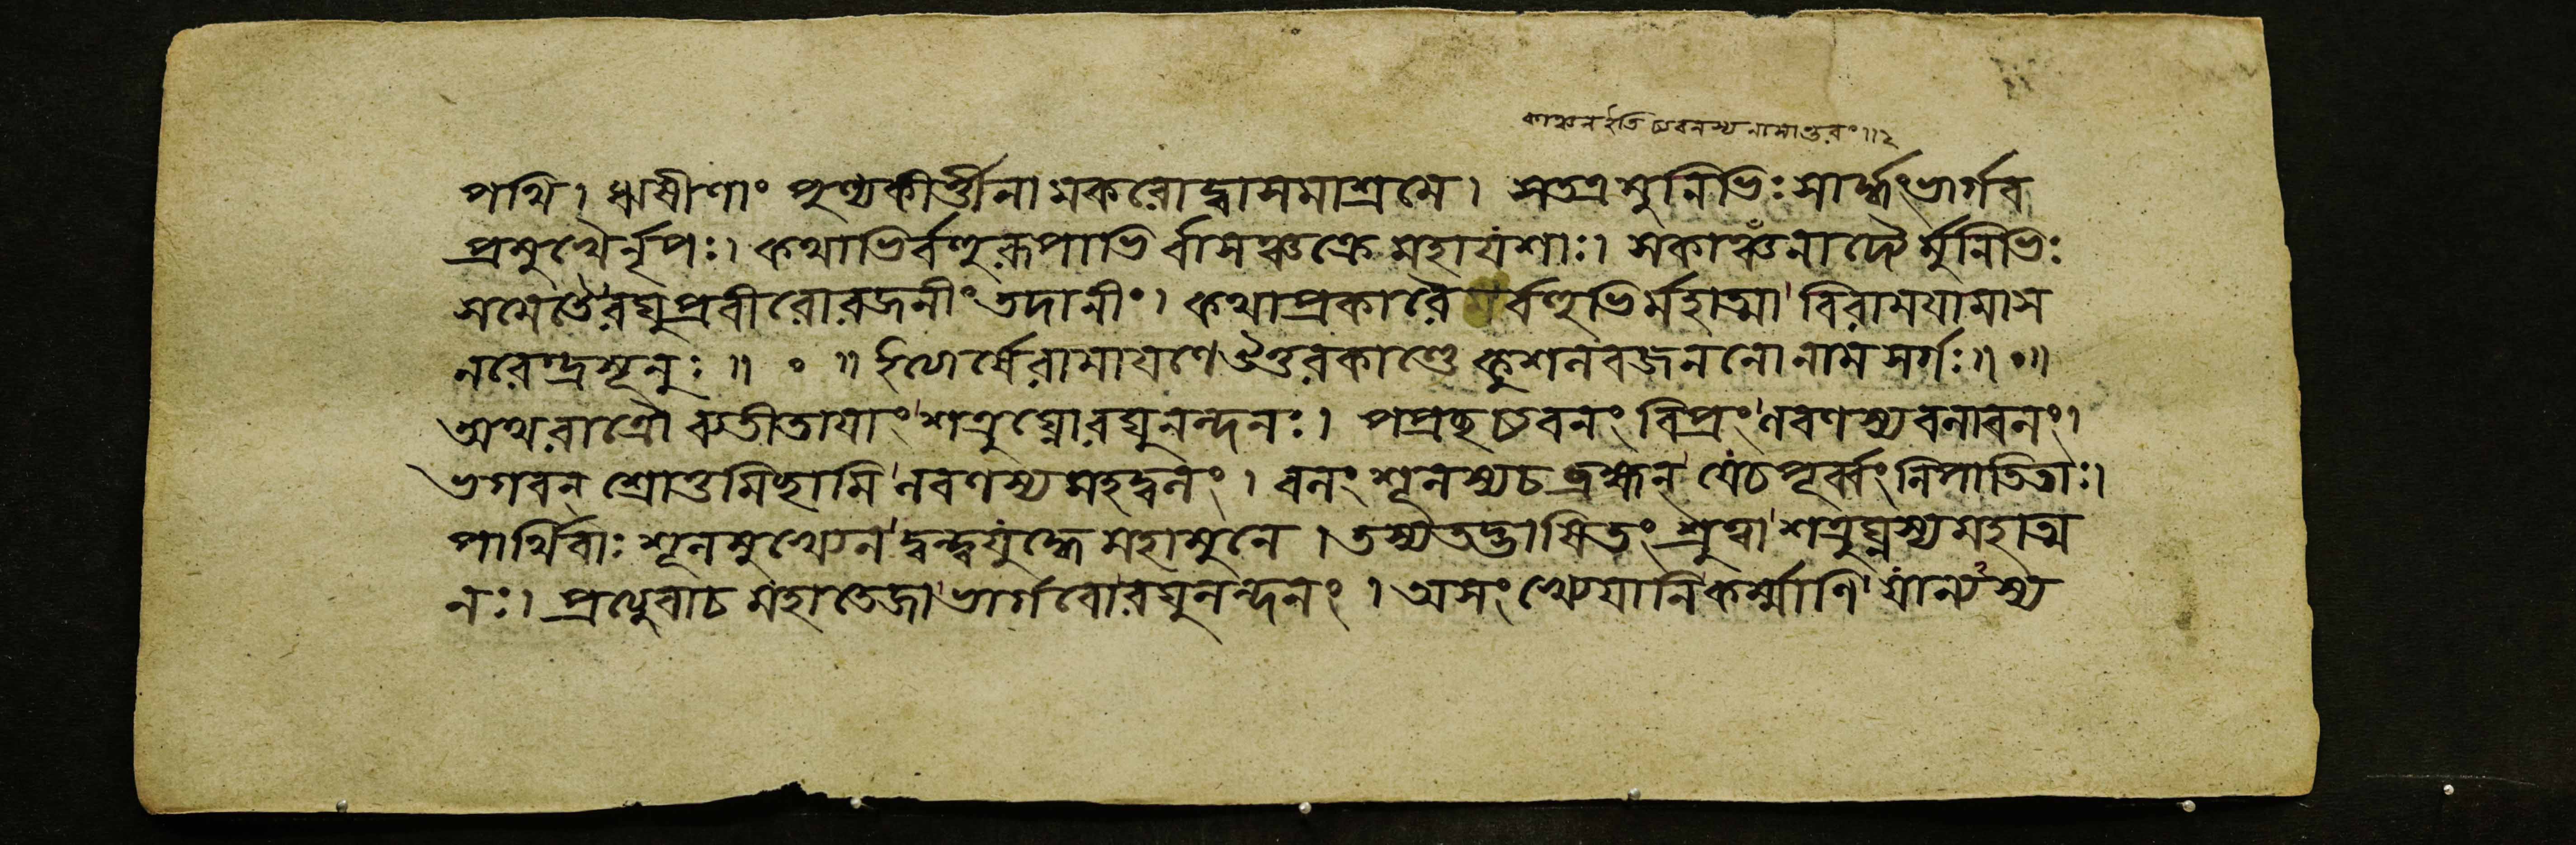 কাঞ্চনইতি চ্যবনস্য নামান্তরং ॥ ২
পথি। ঋষীণাং পুণ্যকীর্ত্তীনামকরোদ্বাসমাশ্রমে। সতত্র মুনিভিঃ সার্দ্ধংভার্গব
প্রমুখৈর্নৃপঃ। কথাভির্বহুরূপাভির্বাসঞ্চক্রে মহাযশাঃ। সকাঞ্চনাদ্যৈর্মুনিভিঃ
সমেতৈরঘুপ্রবীরোরজনীং তদানীং। কথাপ্রকারৈর্বহুভির্মহাত্মা বিরাময়ামাস
নরেন্দ্রসূনুঃ ॥ ০ ॥ ইত্যার্ষেরামায়ণে উত্তরকাণ্ডে কুশলবজননো নাম সর্গঃ ॥ ০ ॥
অথরাত্রৌ ব্যতীতায়াং শত্রুঘ্নোরঘুনন্দনঃ। পপ্রচ্ছ চ্যবনং বিপ্রং লবণস্যবলাবলং।
ভগবন্ শ্রোতুমিচ্ছামি লবণস্য মহদ্বলং। বলং শূলস্যচ ব্রহ্মন্ যেচপূর্ব্বং নিপাতিতাঃ।
পার্থিবাঃ শূলমুখ্যেন দ্বন্দ্বযুদ্ধে মহামুনে। তস্যতদ্ভাষিতং শ্রুত্বা শত্রুঘ্নস্যমহাত্ম
নঃ। প্রত্যুবাচ মহাতেজা ভার্গবোরঘুনন্দনং। অসংখ্যেয়ানি কর্ম্মাণি যান্যস্য